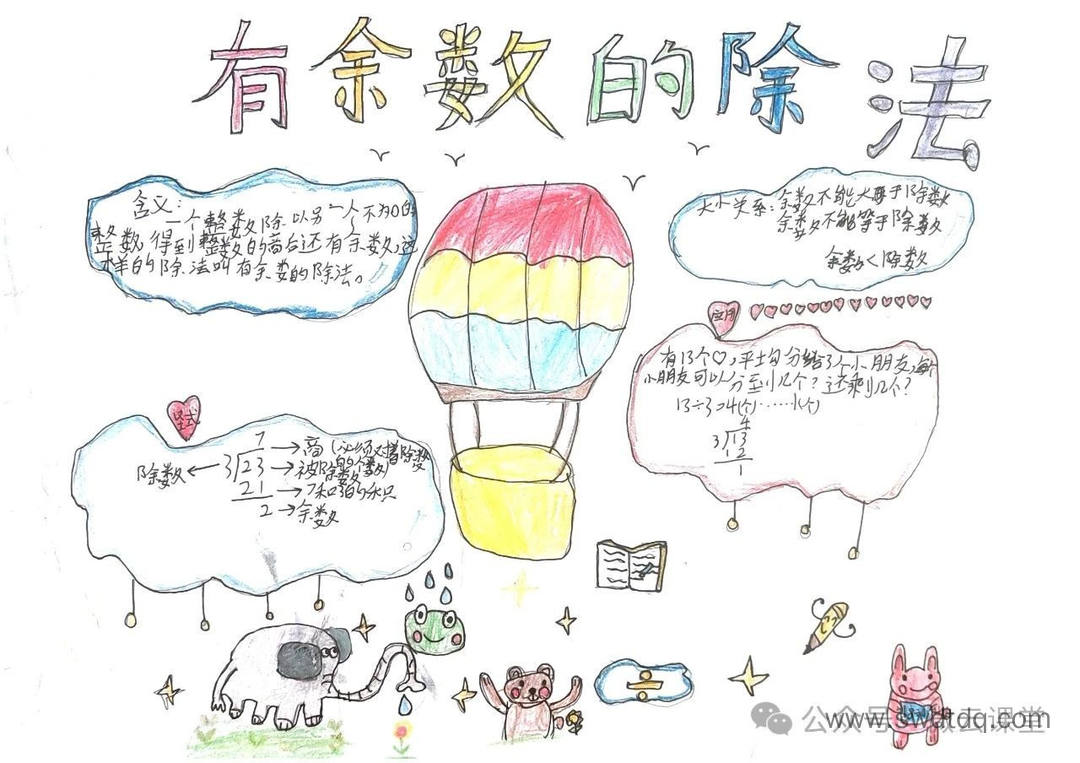 有余数的除法
含义:
一个整数除以另一个不为0的
整数,得到整数的商后还有余数,这
样的除法叫有余数的除法。
大小关系:余数不能大于除数
余数不能等于除数
余数<除数
应用
有13个♡,平均分给3个小朋友,每个
小朋友可以分到几个?还剩几个?
13÷3=4(个)……1(个)
4
3 13
12
1
竖式
7→商
除数←3 23→被除数
21→7和3的乘积
2→余数
÷
公众号
课堂
www.swatdq.com